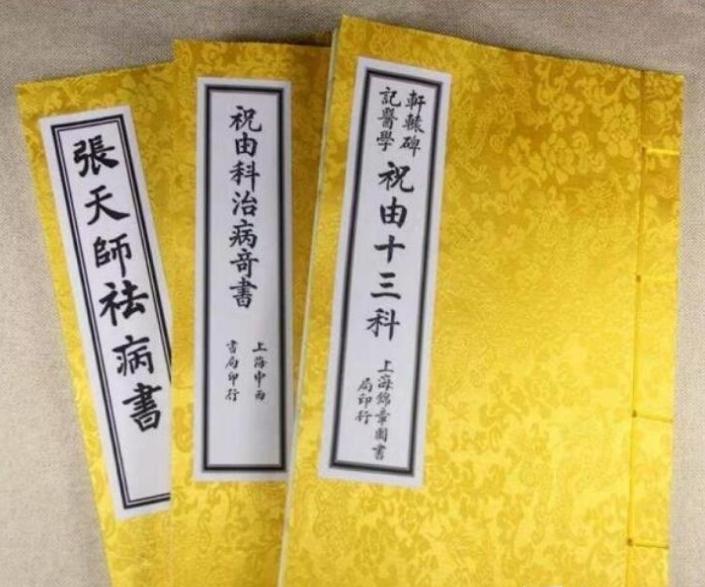 軒轅碑
記醫學
祝由十三科
上海錦章圖書
局印行
祝由科治病奇書
上海中西
書局印行
張天師祛病書